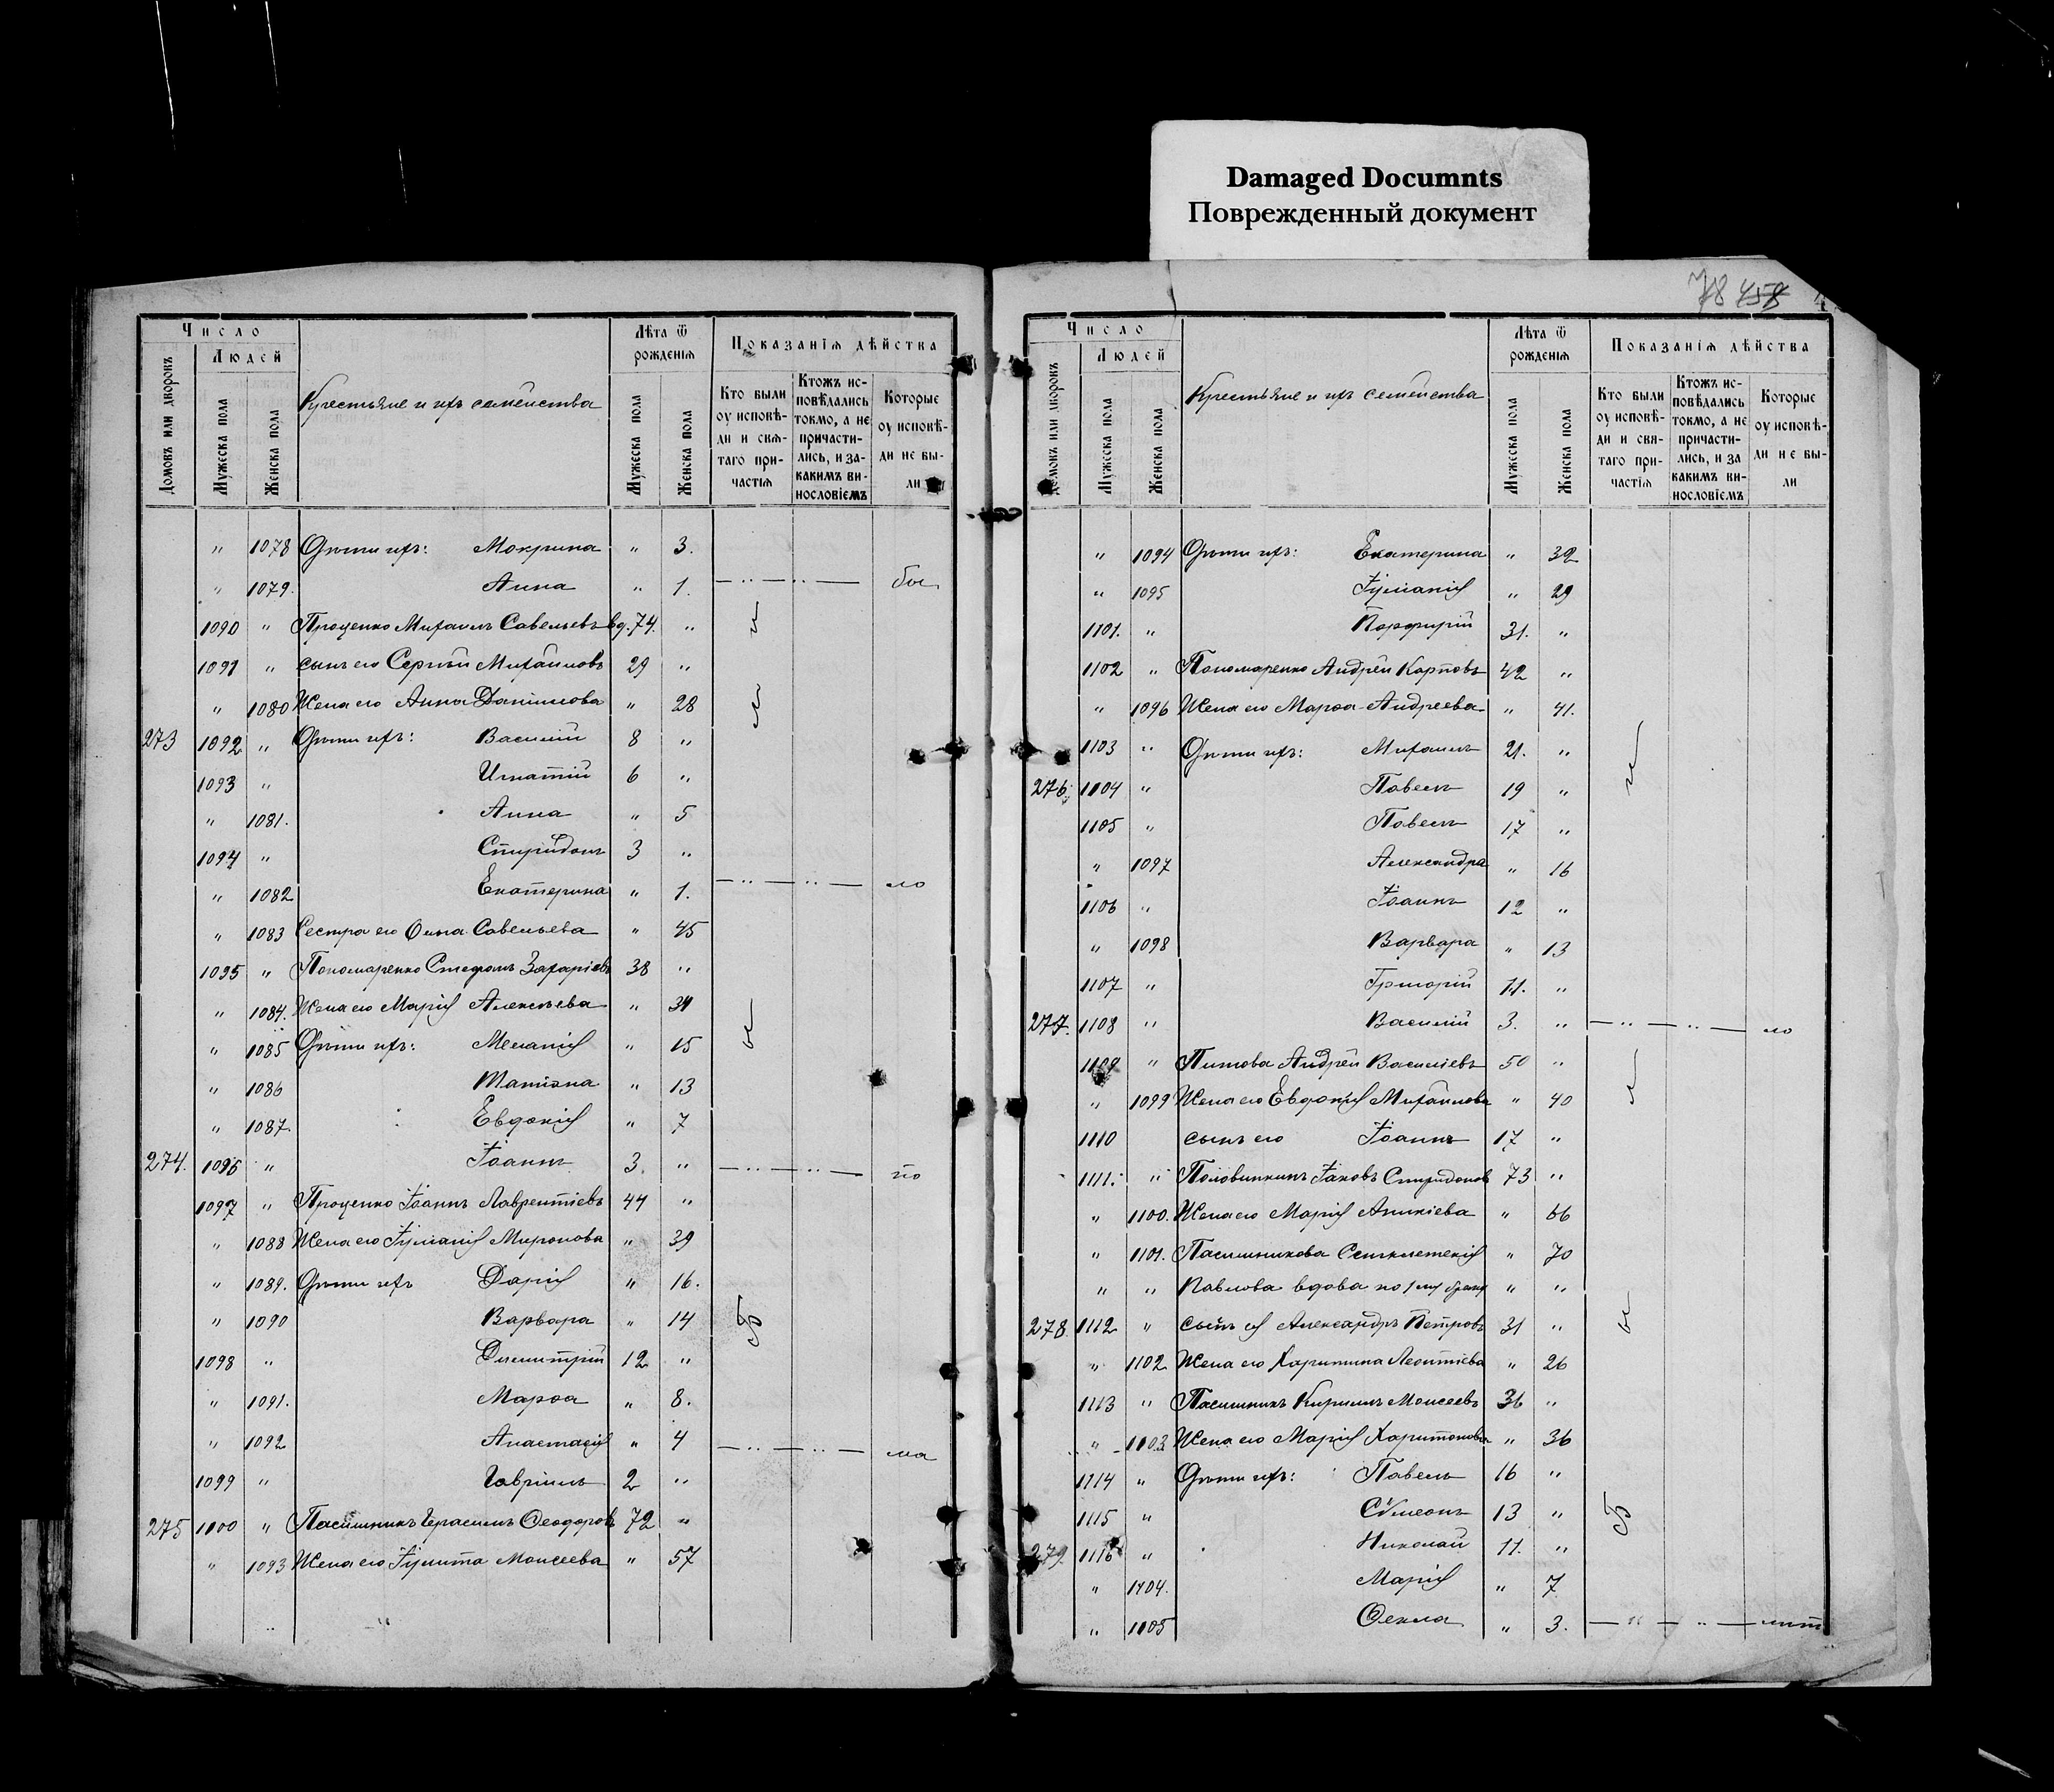 Damaged Documnts
Поврежденный документ
78 458
Число
Людей
Домовъ или дворовъ
Мужеска пола
Женска пола
Крестьяне и ихъ семейства
Лѣта ѿ рожденія
Мужеска пола
Женска пола
Показанія дѣйства
Кто были оу исповѣ-
ди и свя-
таго при-
частія
Ктожъ ис-
повѣдались
токмо, а не
причасти-
лись, и за-
какимъ ви-
нословіемъ
Которые
оу исповѣ-
ди не бы-
ли
" 1078 Дѣти ихъ: Мокрина " 3.
" 1079. Анна " 1. — " — " — бы
1090 " Проценко Михаилъ Савельевъ вд. 74. "
1091 " сынъ его Сергѣй Михайловъ 29 "
" 1080 Жена его Анна Даніилова " 28
273 1092 " Дѣти ихъ: Василій 8 "
1093 " Игнатій 6 "
" 1081. Анна " 5
1094 " Спиридонъ 3 "
" 1082 Екатерина " 1. — " — " — ло
" 1083 Сестра его Ольга Савельева " 45
1095 " Пономаренко Стефанъ Захаріевъ 38 "
" 1084. Жена его Марія Алексѣева " 34
" 1085 Дѣти ихъ: Меланія " 15
" 1086 Татіана " 13
" 1087. Евдокія " 7
274. 1096 " Іоаннъ 3. " — " — " — по
1097 " Проценко Іоаннъ Лаврентіевъ 44 "
" 1088 Жена его Іуліанія Миронова " 39
" 1089. Дѣти ихъ Дарія " 16.
" 1090 Варвара " 14
1098 " Димитрій 12 "
" 1091. Марѳа " 8.
" 1092 Анастасія " 4 — " — " — ма
1099 " Гавріилъ 2 "
275 1100 " Пасишникъ Герасимъ Ѳеодоровъ 72 "
" 1093 Жена его Іулитта Моисеева " 57
Число
Людей
Домовъ или дворовъ
Мужеска пола
Женска пола
Крестьяне и ихъ семейства
Лѣта ѿ рожденія
Мужеска пола
Женска пола
Показанія дѣйства
Кто были
оу исповѣ-
ди и свя-
таго при-
частія
Ктожъ ис-
повѣдались
токмо, а не
причасти-
лись, и за
какимъ ви-
нословіемъ
Которые
оу исповѣ-
ди не бы-
ли
" 1094 Дѣти ихъ: Екатерина " 32
" 1095 Іуліанія " 29
1101. " Порфирій 31. "
1102 " Пономаренко Андрей Карповъ 42 "
" 1096 Жена его Марѳа Андреева " 41.
1103 " Дѣти ихъ: Михаилъ 21. "
276. 1104 " Павелъ 19 "
1105 " Павелъ 17 "
" 1097 Александра " 16
1106 " Іоаннъ 12 "
" 1098 Варвара " 13
1107 " Григорій 11. "
277. 1108 " Василій 3. " — " — " — ло
1109 " Андрей Василіевъ 50 "
" 1099 Жена его Евдокія Михайлова " 40
1110 сынъ его Іоаннъ 17 "
1111. " Половинкинъ Іаковъ Спиридоновъ 73 "
" 1100. Жена его Марія Аникіева " 66
" 1101. Пасишникова Сѵнклитикія " 70
" " Павлова вдова по 1му браку " "
278. 1112 " сынъ ея Александръ Петровъ 31 "
" 1102 Жена его Харитина Леонтіева " 26
1113 " Пасишникъ Кириллъ Моисеевъ 36 "
" 1103. Жена его Марія Харитонова " 36
1114 " Дѣти ихъ: Павелъ 16 "
1115 " Сѵмеонъ 13 "
279. 1116 " Николай 11. "
" 1104. Марія " 7
" 1105 Ѳекла " 3. — " — " —